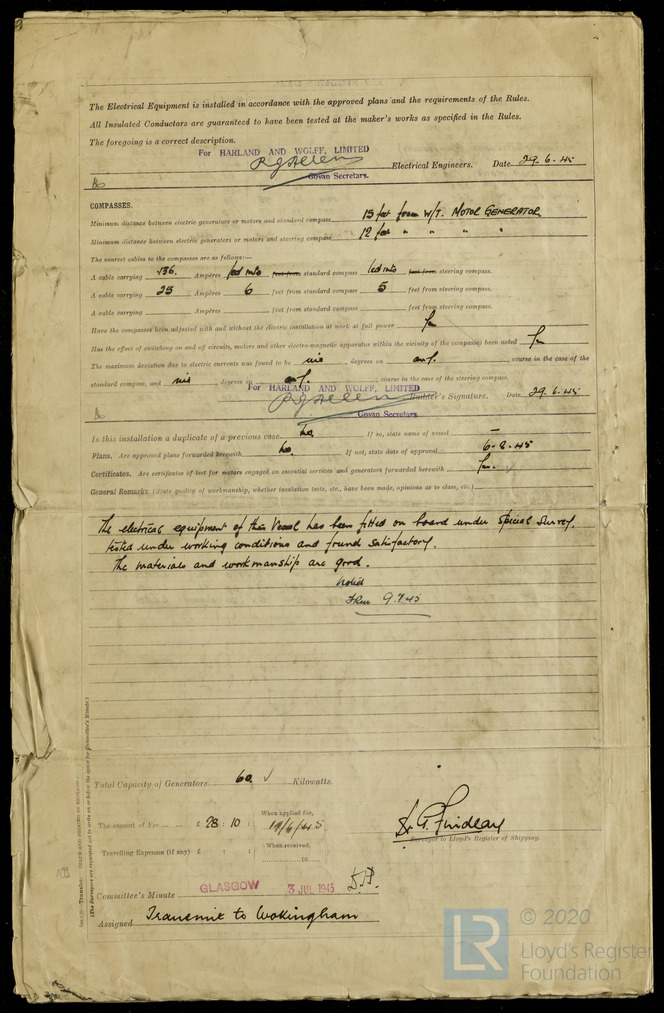 The Electrical Equipment is installed in accordance with the approved plans and the requirements of the Rules.
All Insulated Conductors are guaranteed to have been tested at the maker's works as specified in the Rules.
The foregoing is a correct description.
For HARLAND AND WOLFF, LIMITED
Electrical Engineers. Date 29.6.45
Govan Secretars.
COMPASSES.
Minimum distance between electric generators or motors and standard compass 15 feet from W/T. MOTOR GENERATOR
Minimum distance between electric generators or motors and steering compass 12 feet " " " "
The nearest cables to the compasses are as follows:—
A cable carrying .136 Ampères led into feet from standard compass led into feet from steering compass.
A cable carrying 25 Ampères 6 feet from standard compass 5 feet from steering compass.
A cable carrying Ampères feet from standard compass feet from steering compass.
Have the compasses been adjusted with and without the electric installation at work at full power Yes
Has the effect of switching on and off circuits, motors and other electro-magnetic apparatus within the vicinity of the compasses been noted Yes
The maximum deviation due to electric currents was found to be nil degrees on any course in the case of the
standard compass, and nil degrees on any course in the case of the steering compass.
For HARLAND AND WOLFF, LIMITED
Builder's Signature. Date 29.6.45
Govan Secretars.
Is this installation a duplicate of a previous case No. If so, state name of vessel —
Plans. Are approved plans forwarded herewith No. If not, state date of approval 6-2-45
Certificates. Are certificates of test for motors engaged on essential services and generators forwarded herewith Yes.
General Remarks (State quality of workmanship, whether insulation tests, etc., have been made, opinions as to class, etc.)
The electrical equipment of this Vessel has been fitted on board under Special Survey.
tested under working conditions and found satisfactory.
The materials and workmanship are good.
Noted
9.7.45
Total Capacity of Generators 60 ✓ Kilowatts.
The amount of Fee ... ... £ 28 : 10 : When applied for, 19/6/45
Travelling Expenses (if any) £ : : When received, 19
S. G. Findlay
Surveyor to Lloyd's Register of Shipping.
Committee's Minute GLASGOW 3 JUL 1945
Assigned Transmit to Wokingham
© 2020
LR
Lloyd's Register
Foundation